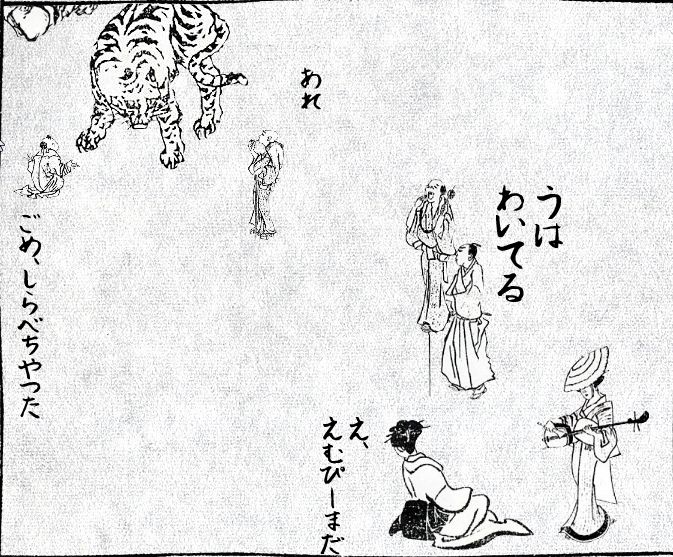 あれ
うは
わいてる
ごめ、しらべちやつた
え、
えむぴーまだ